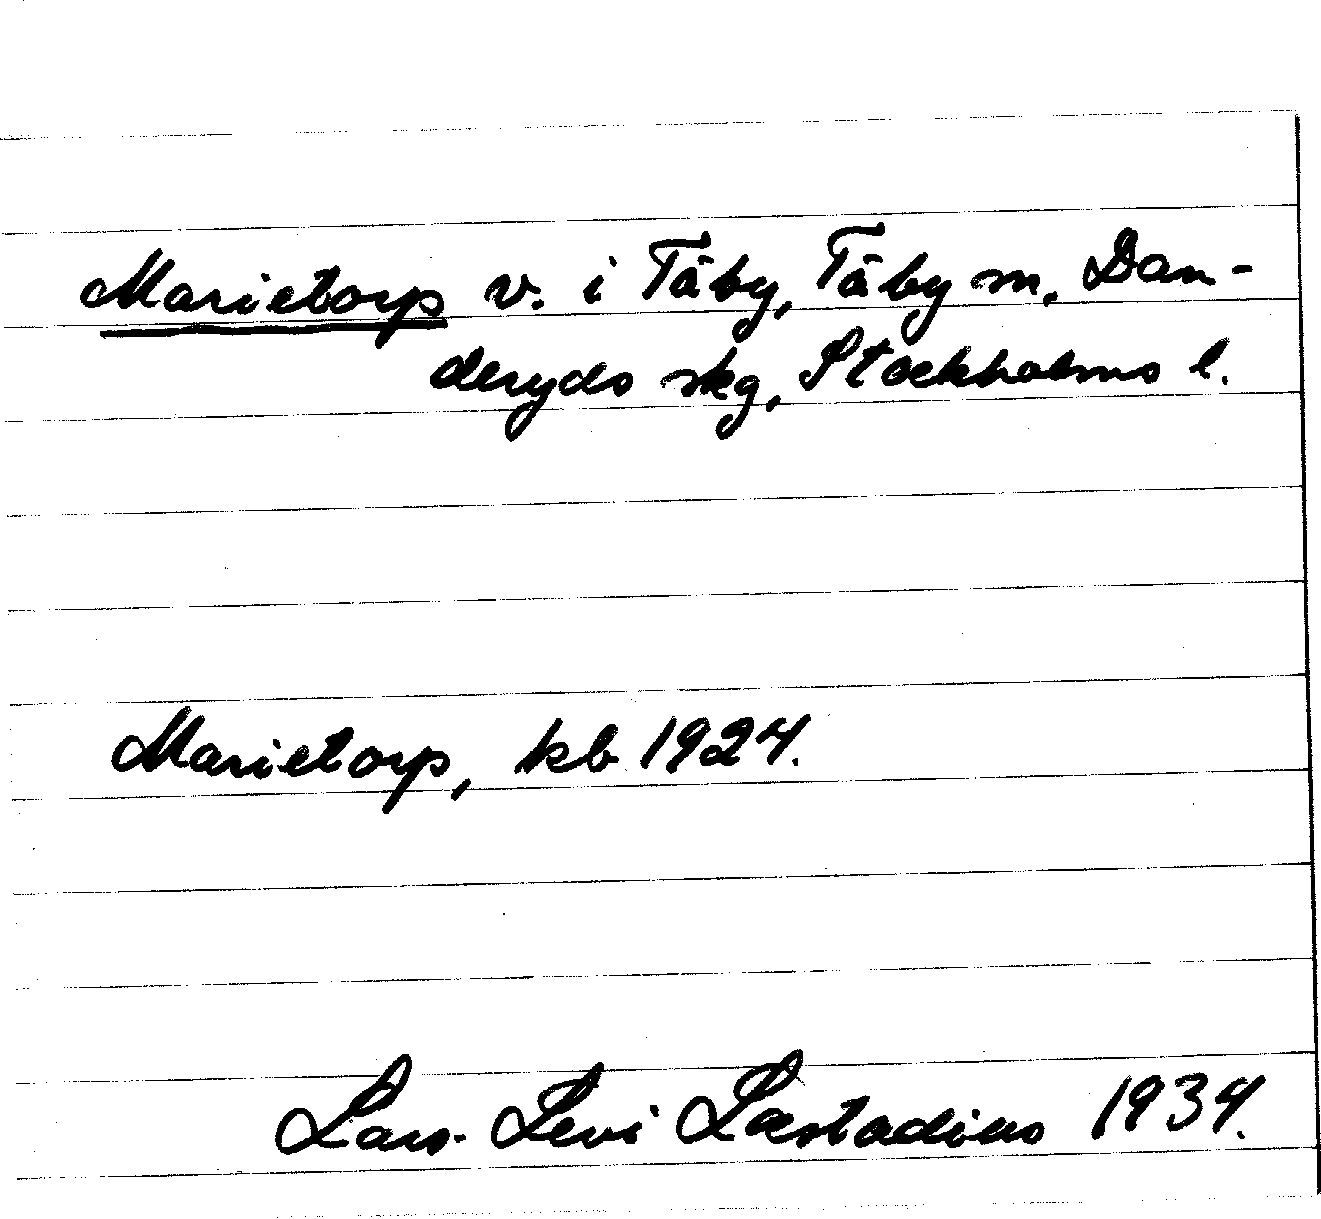 Marietorp v. i Täby, Täby sn, Dan-
deryds skg, Stockholms l.
Marietorp, kb 1924.
Lars Levi Læstadius 1934.